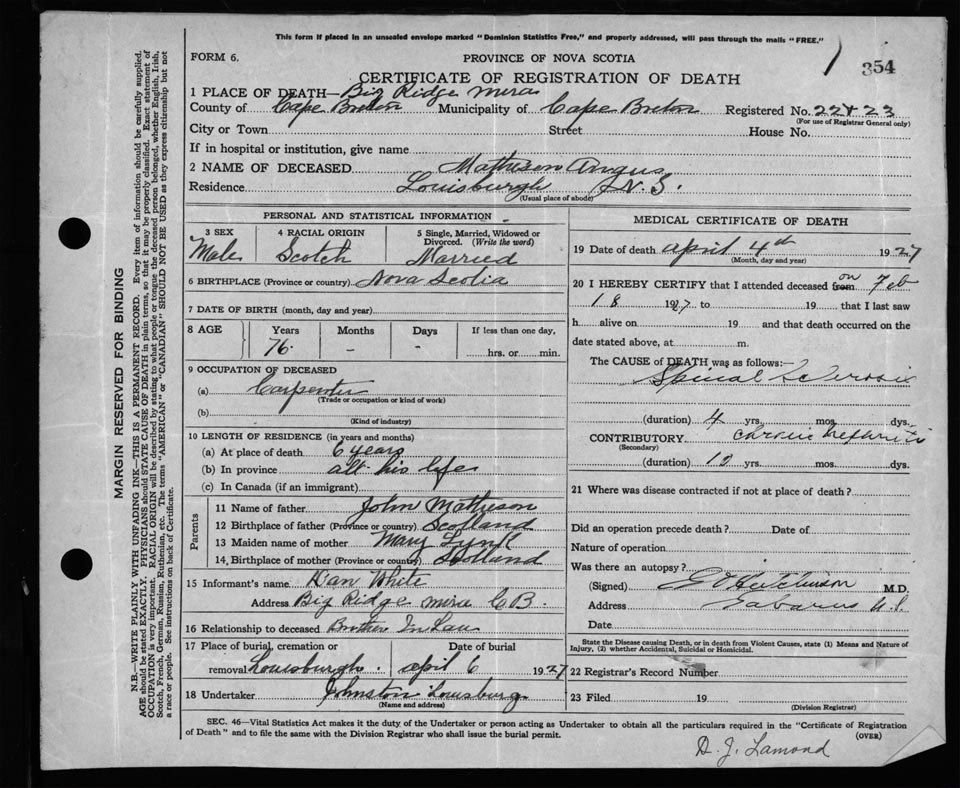 This form if placed in an unsealed envelope marked "Dominion Statistics Free," and properly addressed, will pass through the mails "FREE."
FORM 6.
PROVINCE OF NOVA SCOTIA
1 354
CERTIFICATE OF REGISTRATION OF DEATH
1 PLACE OF DEATH—Big Ridge Mira
County of Cape Breton Municipality of Cape Breton Registered No. 22423
(For use of Registrar General only)
City or Town Street House No.
If in hospital or institution, give name
2 NAME OF DECEASED Matheson Angus
Residence Louisburgh N.S.
(Usual place of abode)
PERSONAL AND STATISTICAL INFORMATION
3 SEX 4 RACIAL ORIGIN 5 Single, Married, Widowed or Divorced. (Write the word)
Male Scotch Married
6 BIRTHPLACE (Province or country) Nova Scotia
7 DATE OF BIRTH (month, day and year)
8 AGE Years Months Days If less than one day,
76 - - hrs. or min.
9 OCCUPATION OF DECEASED
(a) Carpenter
(Trade or occupation or kind of work)
(b)
(Kind of industry)
10 LENGTH OF RESIDENCE (in years and months)
(a) At place of death 6 years
(b) In province all his life
(c) In Canada (if an immigrant)
Parents
11 Name of father John Matheson
12 Birthplace of father (Province or country) Scotland
13 Maiden name of mother Mary
14 Birthplace of mother (Province or country) Scotland
15 Informant's name Dan White
Address Big Ridge Mira C B.
16 Relationship to deceased Brother In Law
17 Place of burial, cremation or removal Louisburgh. Date of burial April 6 1927
18 Undertaker Johnston Louisburg
(Name and address)
MEDICAL CERTIFICATE OF DEATH
19 Date of death April 4th 1927
(Month, day and year)
20 I HEREBY CERTIFY that I attended deceased from on Feb
18 1927 to 19 that I last saw
h alive on 19 and that death occurred on the
date stated above, at m.
The CAUSE of DEATH was as follows:—
Spinal Sclerosis
(duration) 4 yrs. mos. dys.
CONTRIBUTORY chronic nephritis
(Secondary)
(duration) 10 yrs. mos. dys.
21 Where was disease contracted if not at place of death?
Did an operation precede death? Date of
Nature of operation
Was there an autopsy?
(Signed) Hutchinson M.D.
Address Gabarus N.S.
Date
State the Disease causing Death, or in death from Violent Causes, state (1) Means and Nature of Injury, (2) whether Accidental, Suicidal or Homicidal.
22 Registrar's Record Number
23 Filed 19
(Division Registrar)
SEC. 46—Vital Statistics Act makes it the duty of the Undertaker or person acting as Undertaker to obtain all the particulars required in the "Certificate of Registration
of Death" and to file the same with the Division Registrar who shall issue the burial permit.
(OVER)
D. J. Lamond
MARGIN RESERVED FOR BINDING
N.B.—WRITE PLAINLY WITH UNFADING INK—THIS IS A PERMANENT RECORD. Every item of information should be carefully supplied.
AGE should be stated EXACTLY. PHYSICIANS should STATE CAUSE OF DEATH in plain terms, so that it may be properly classified. Exact statement of
OCCUPATION is very important. RACIAL ORIGIN will be described by stating to what people or tongue the deceased person belonged, whether English, Irish,
Scotch, French, German, Russian, Ruthenian, etc. The terms "AMERICAN" or "CANADIAN" SHOULD NOT BE USED as they express citizenship but not
a race or people. See instructions on back of Certificate.